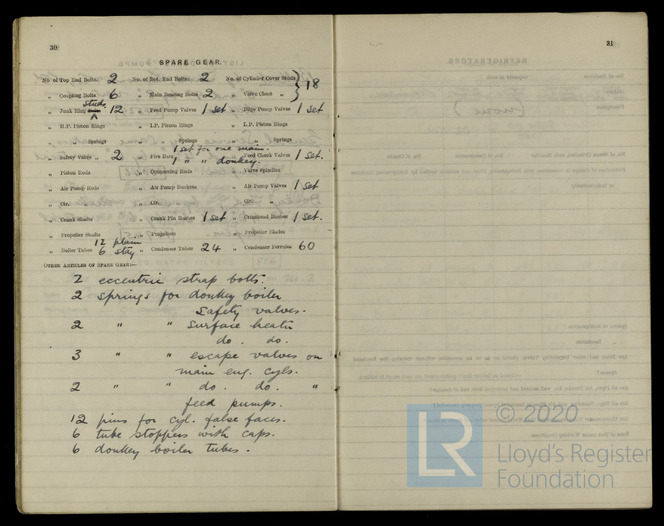 30
SPARE GEAR.
No. of Top End Bolts. 2 No. of Bot. End Bolts. 2 No. of Cylinder Cover Studs } 18
„ Coupling Bolts 6 „ Main Bearing Bolts 2 „ Valve Chest „
„ Junk Ring studs 12 „ Feed Pump Valves 1 set „ Bilge Pump Valves 1 set
„ H.P. Piston Rings „ I.P. Piston Rings „ L.P. Piston Rings
„ „ Springs „ „ Springs „ „ Springs
„ Safety Valve „ 2 „ Fire Bars 1 set for one main. 1 „ „ donkey. „ Feed Check Valves 1 set.
„ Piston Rods „ Connecting Rods „ Valve Spindles
„ Air Pump Rods „ Air Pump Buckets „ Air Pump Valves 1 set
„ Cir. „ „ Cir. „ „ Cir. „
„ Crank Shafts „ Crank Pin Bushes 1 set „ Crosshead Bushes 1 set.
„ Propeller Shafts „ Propellers „ Propeller Blades
„ Boiler Tubes 12 plain 6 stay „ Condenser Tubes 24 „ Condenser Ferrules 60
OTHER ARTICLES OF SPARE GEAR:—
2 eccentric strap bolts.
2 springs for donkey boiler
safety valves.
2 „ „ surface heatr
do. do.
3 „ „ escape valves on
main eng. cyls.
2 „ „ do. do. „
feed pumps.
12 pins for cyl. false faces.
6 tube stoppers with caps.
6 donkey boiler tubes.
31
© 2020
LR
Lloyd's Register
Foundation